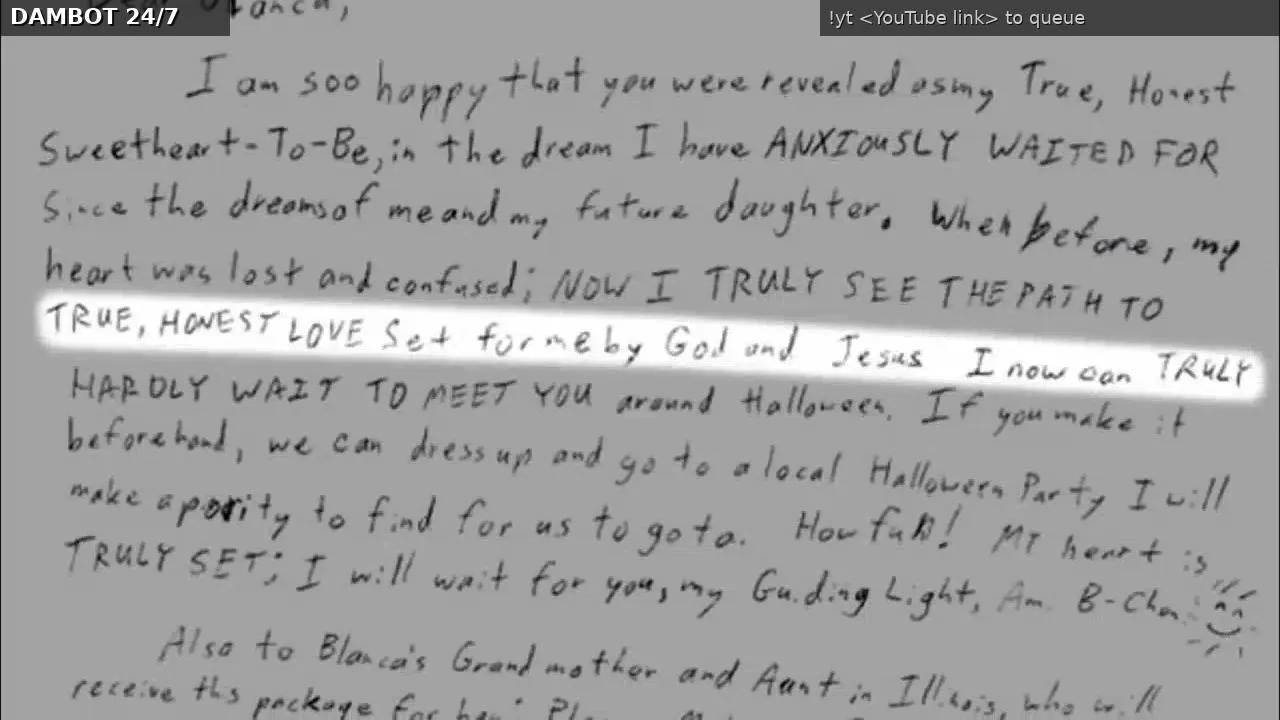 DAMBOT 24/7
!yt <YouTube link> to queue
Blanca,
I am soo happy that you were revealed as my True, Honest
Sweetheart-To-Be, in the dream I have ANXIOUSLY WAITED FOR
since the dreams of me and my future daughter. When before, my
heart was lost and confused; NOW I TRULY SEE THE PATH TO
TRUE, HONEST LOVE set for me by God and Jesus I now can TRULY
HARDLY WAIT TO MEET YOU around Halloween. If you make it
beforehand, we can dress up and go to a local Halloween Party I will
make a pority to find for us to go to. How fun! MY heart is
TRULY SET; I will wait for you, my Guiding Light, Am. B-Chan
Also to Blanca's Grandmother and Aunt in Illinois, who will
receive ths package for her: